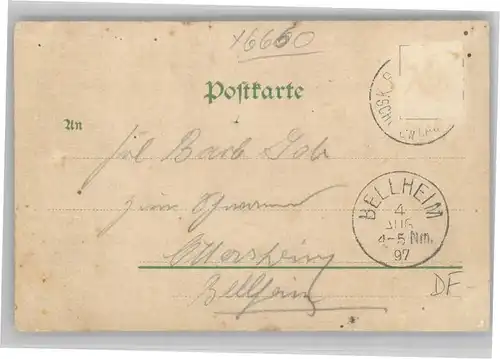 x6660
Postkarte
An
Frl Barb
zum
Ottersheim
Bellheim
BELLHEIM
4
AUG
4-5 Nm.
97
DF-